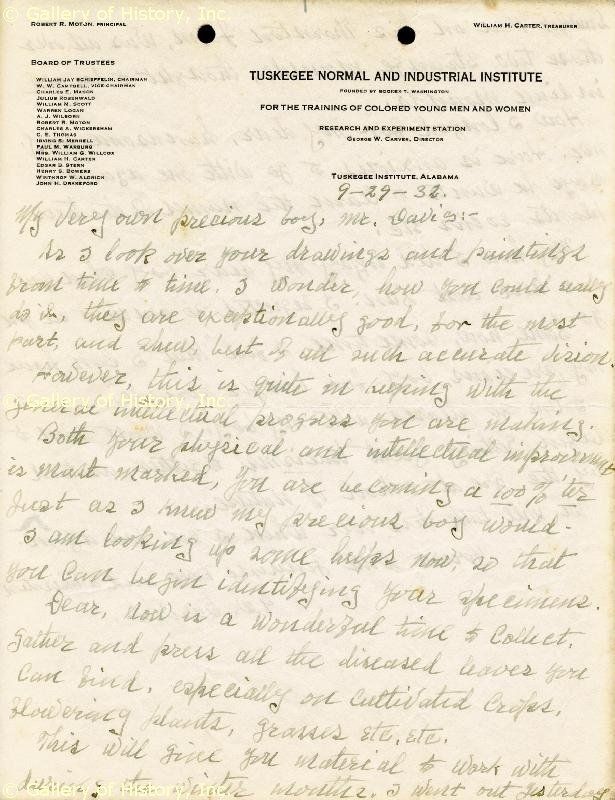 © Gallery of History, Inc.
ROBERT R. MOTON, PRINCIPAL
WILLIAM H. CARTER, TREASURER
BOARD OF TRUSTEES
WILLIAM JAY SCHIEFFELIN, CHAIRMAN
W. W. CAMPBELL, VICE-CHAIRMAN
CHARLES E. MASON
JULIUS ROSENWALD
WILLIAM N. SCOTT
WARREN LOGAN
A. J. WILBORN
ROBERT R. MOTON
CHARLES A. WICKERSHAM
C. E. THOMAS
IRVING S. MERRELL
PAUL M. WARBURG
MRS. WILLIAM G. WILLCOX
WILLIAM H. CARTER
EDGAR B. STERN
HENRY S. BOWERS
WINTHROP W. ALDRICH
JOHN H. DRAKEFORD
TUSKEGEE NORMAL AND INDUSTRIAL INSTITUTE
FOUNDED BY BOOKER T. WASHINGTON
FOR THE TRAINING OF COLORED YOUNG MEN AND WOMEN
RESEARCH AND EXPERIMENT STATION
GEORGE W. CARVER, DIRECTOR
TUSKEGEE INSTITUTE, ALABAMA
9-29-32.
My very own precious boy, Mr. Davis:-
As I look over your drawings and paintings
from time to time. I wonder, how you could really
do it, they are exceptionally good, for the most
part, and show, best of all such accurate vision.
However, this is quite in keeping with the
general intellectual progress you are making.
Both your physical and intellectual improvement
is most marked, you are becoming a 100% 'ter
Just as I knew my precious boy would.
I am looking up some helps now, so that
you can begin identifying your specimens.
Dear, now is a wonderful time to collect.
Gather and press all the diseased leaves you
can find, especially on cultivated crops,
flowering plants, grasses etc. etc.
This will give you material to work with
during the winter months. I went out yesterday
© Gallery of History, Inc.